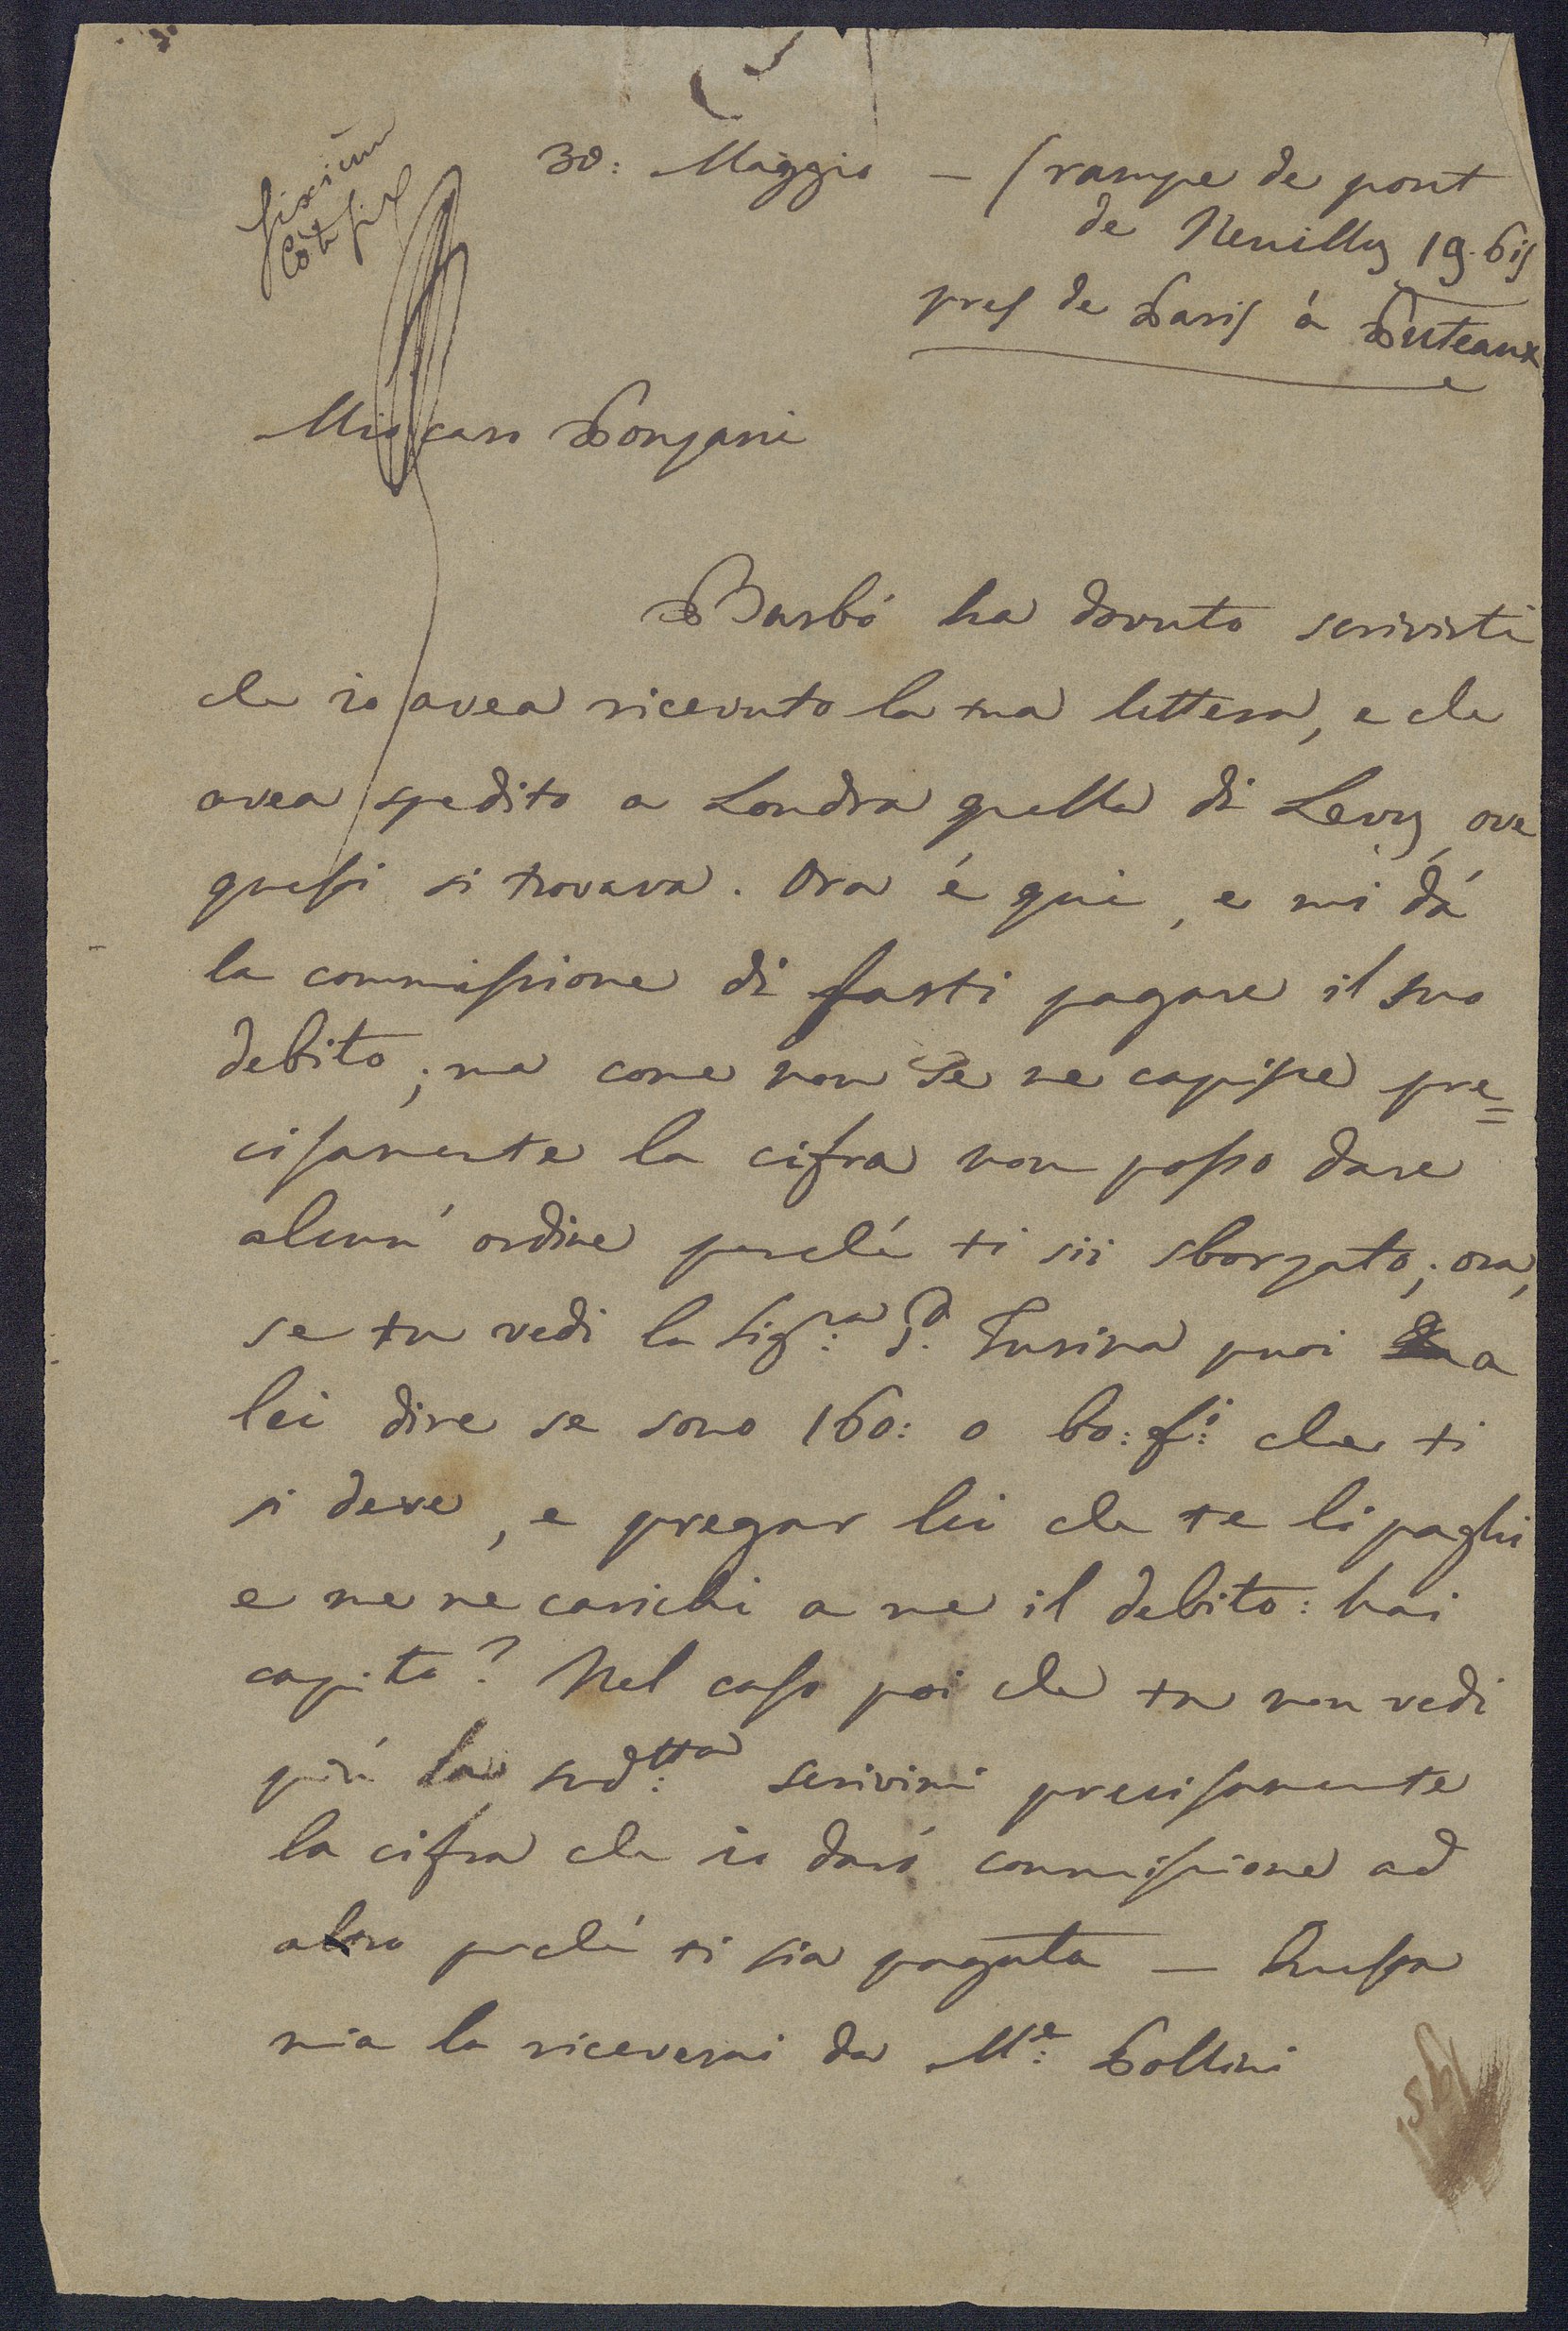 30: Maggio — rampe de pont
de Neuilly 19. bis
pres de Paris á Puteaux
Mio caro Bonzani
Barbó ha dovuto scriverti
che io avea ricevuto la tua lettera, e che
avea spedito a Londra quella di Levy ove
questi si trovava. Ora é qui, e mi dá
la commissione di farti pagare il suo
debito; ma come non se ne capisce pre=
cisamente la cifra non posso dare
alcun' ordine perché ti sii sborzato; ora,
se tu vedi la Sig:ra Turina puoi a
lei dire se sono 160: o 60: f:i che ti
si deve, e pregar lei che te li paghi
e me ne carichi a me il debito: hai
capito? Nel caso poi che tu non vedi
piú la sud:tta scrivimi precisamente
la cifra che io daró commissione ad
altro perché ti sia pagata — Questa
mia la riceverai da M:e Pollini